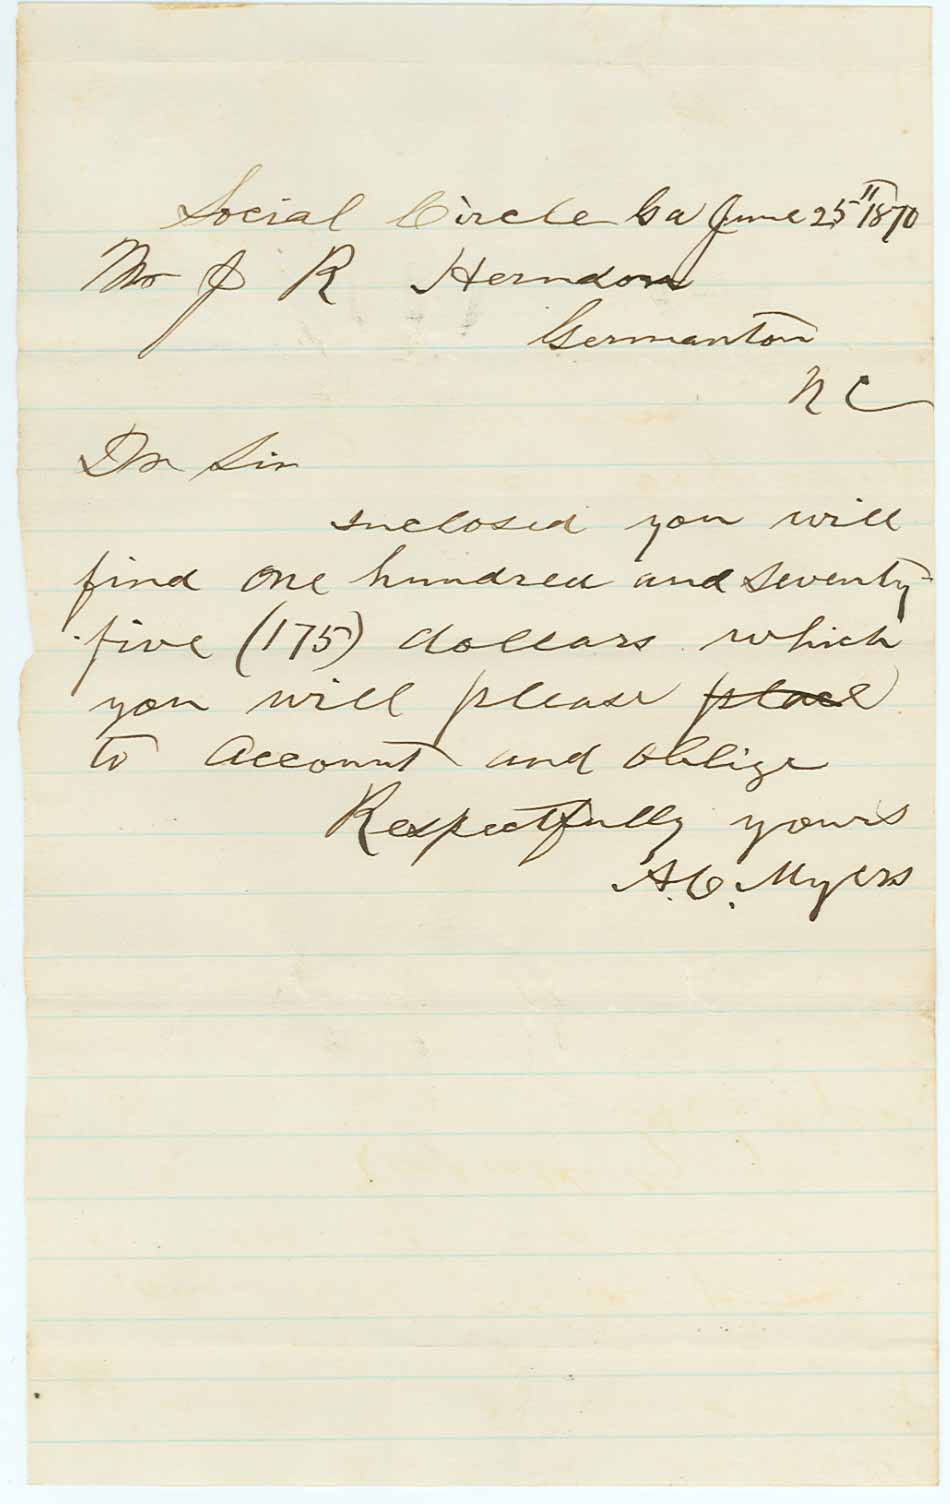 Social Circle Ga June 25" 1870
Mr J R Herndon
Germanton
N C
Dr Sir
Inclosed you will
find One hundred and seventy-
five (175) dollars which
you will please place
to Account and oblige
Respectfully yours
A. C. Myers